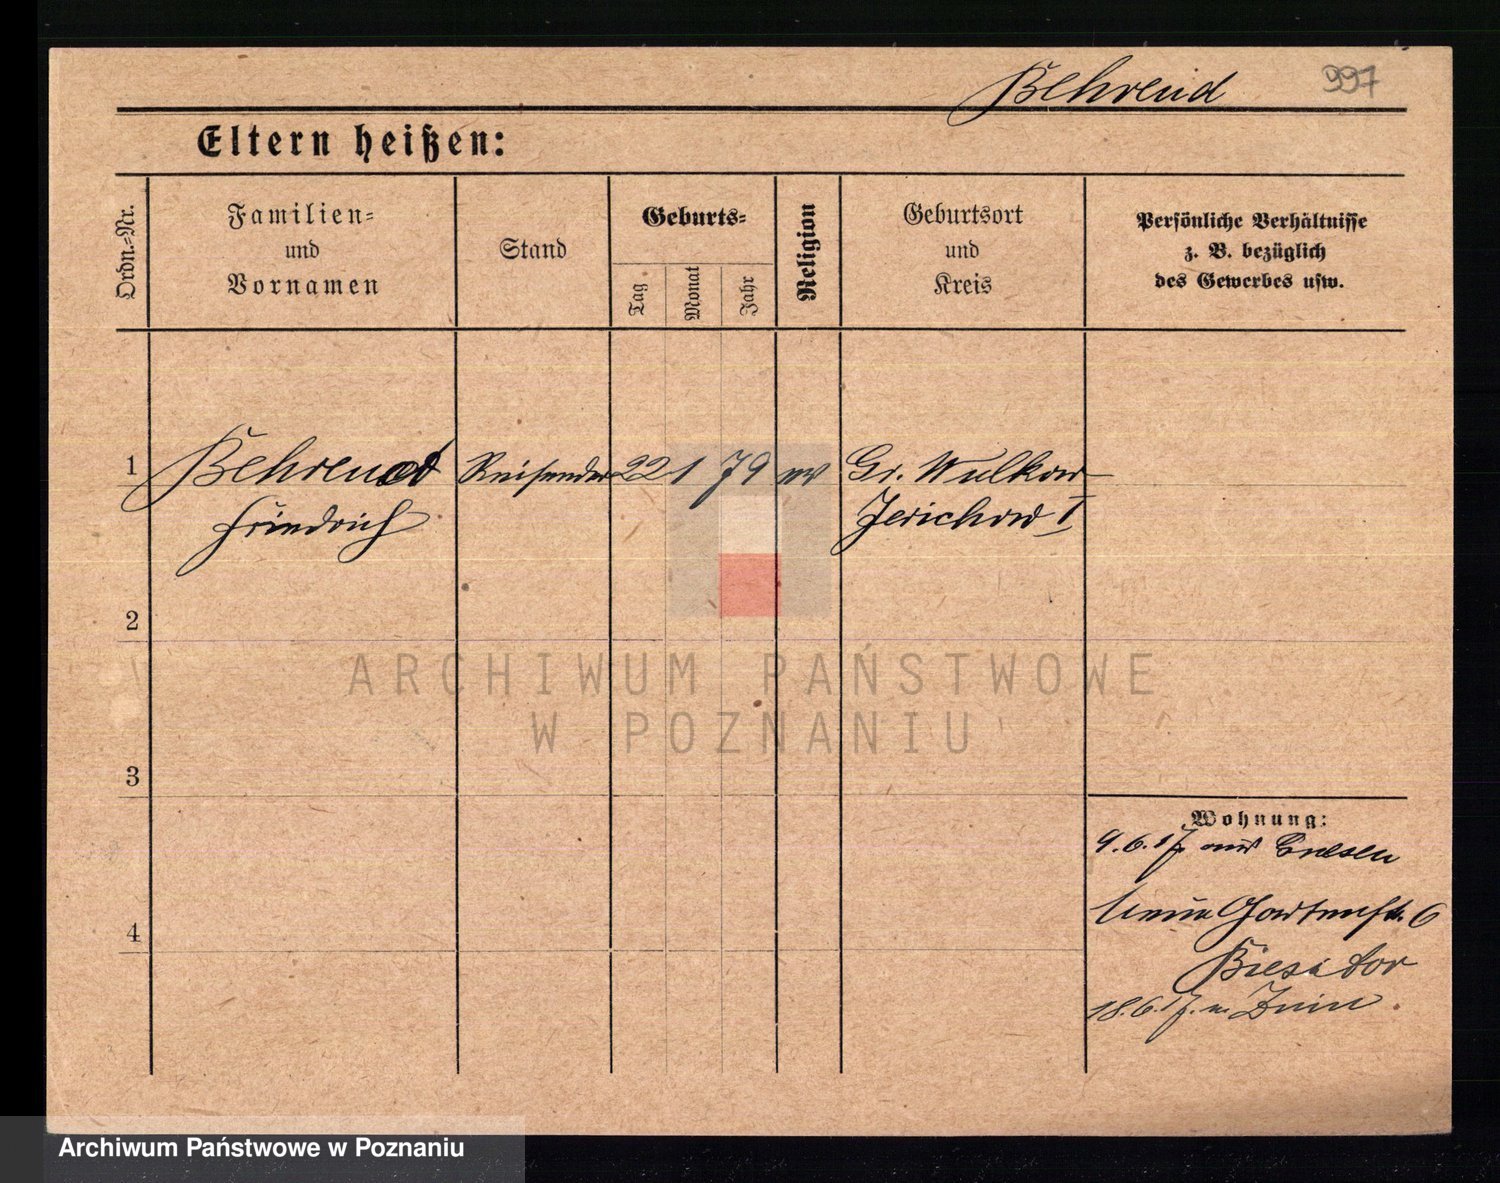 Behrend 997
Eltern heißen:
Ordn.=Nr.
Familien=
und
Vornamen
Stand
Geburts=
Tag
Monat
Jahr
Religion
Geburtsort
und
Kreis
Persönliche Verhältnisse
z. B. bezüglich
des Gewerbes usw.
1 Behrend Reisender 22 1 79 ev Gr. Wulkow
Friedrich Jerichow I
2
3
4
Wohnung:
9.6.17. aus Gnesen
Neue Gartenstr. 6
Biesi tor
18.6.17. n. Znin
ARCHIWUM PAŃSTWOWE
W POZNANIU
Archiwum Państwowe w Poznaniu